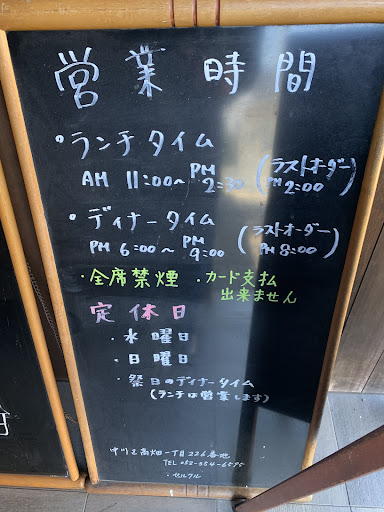 営業時間
・ランチタイム
AM 11:00〜PM 2:30 (ラストオーダー PM 2:00)
・ディナータイム
PM 6:00〜PM 9:00 (ラストオーダー PM 8:00)
・全席禁煙 ・カード支払出来ません
定休日
・水曜日
・日曜日
・祭日のディナータイム
(ランチは営業します)
中川区高畑一丁目226番地
TEL 052-354-6595
セルクル